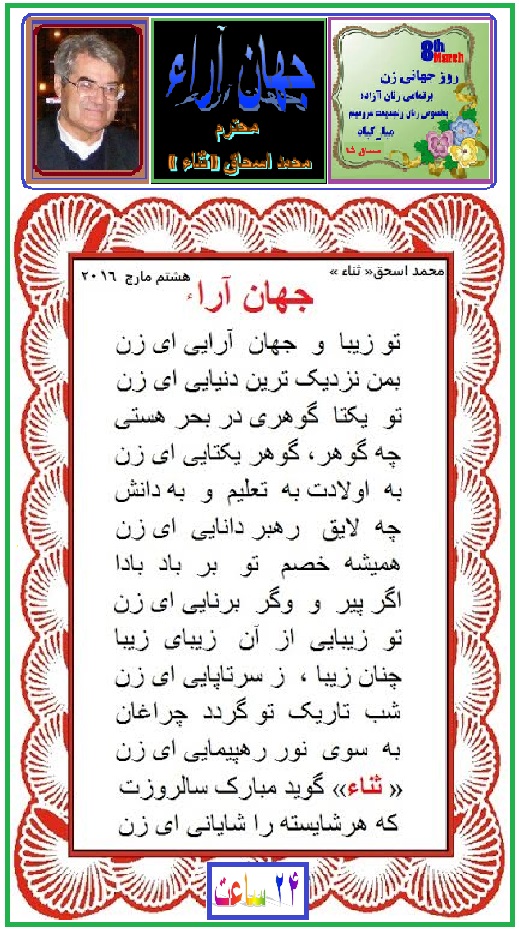 جهان آراء
محترم
محمد اسحاق (( ثناء ))
8th
March
روز جهانی زن
برتمامی زنان آزاده
بخصوص زنان
مبارکباد
محمد اسحق« ثناء »
هشتم مارچ ۲۰۱۶
جهان آراء
تو زیبا و جهان آرایی ای زن
بمن نزدیک ترین دنیایی ای زن
تو یکتا گوهری در بحر هستی
چه گوهر، گوهر یکتایی ای زن
به اولادت به تعلیم و به دانش
چه لایق رهبر دانایی ای زن
همیشه خصم تو بر باد بادا
اگر پیر و وگر برنایی ای زن
تو زیبایی از آن زیبای زیبا
چنان زیبا ، ز سرتاپایی ای زن
شب تاریک تو گردد چراغان
به سوی نور رهپیمایی ای زن
« ثناء» گوید مبارک سالروزت
که هرشایسته را شایانی ای زن
۲۴ ساعت